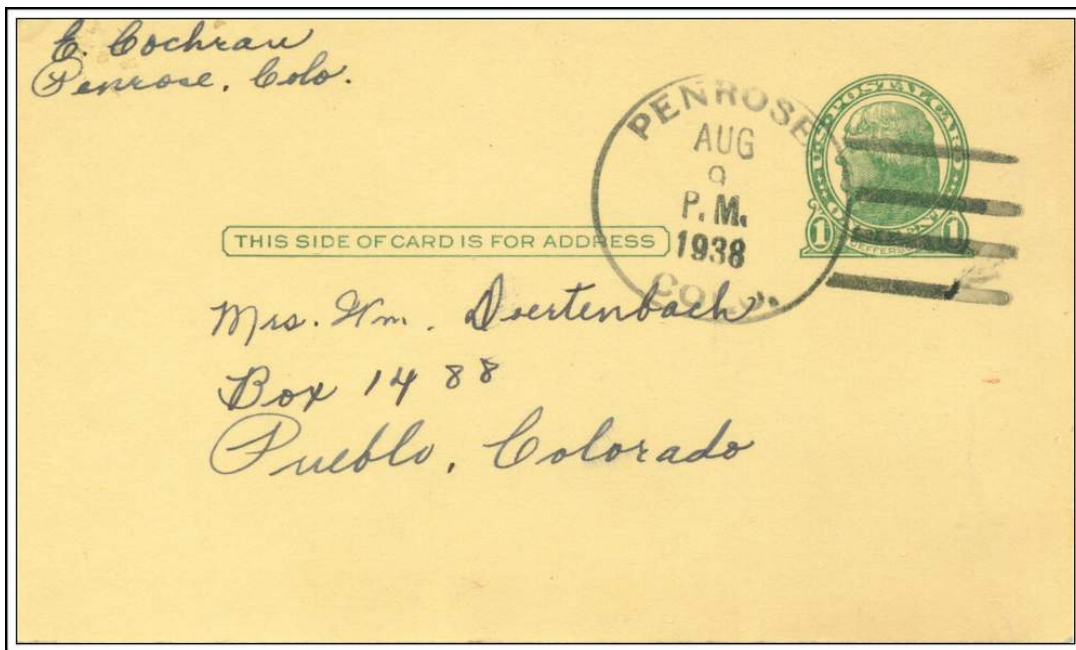 E. Cochran
Penrose, Colo.
PENROSE
AUG
9
P. M.
1938
COLO.
U.S. POSTAL CARD
1 1
JEFFERSON
THIS SIDE OF CARD IS FOR ADDRESS
Mrs. Wm. Doertenbach
Box 1488
Pueblo, Colorado